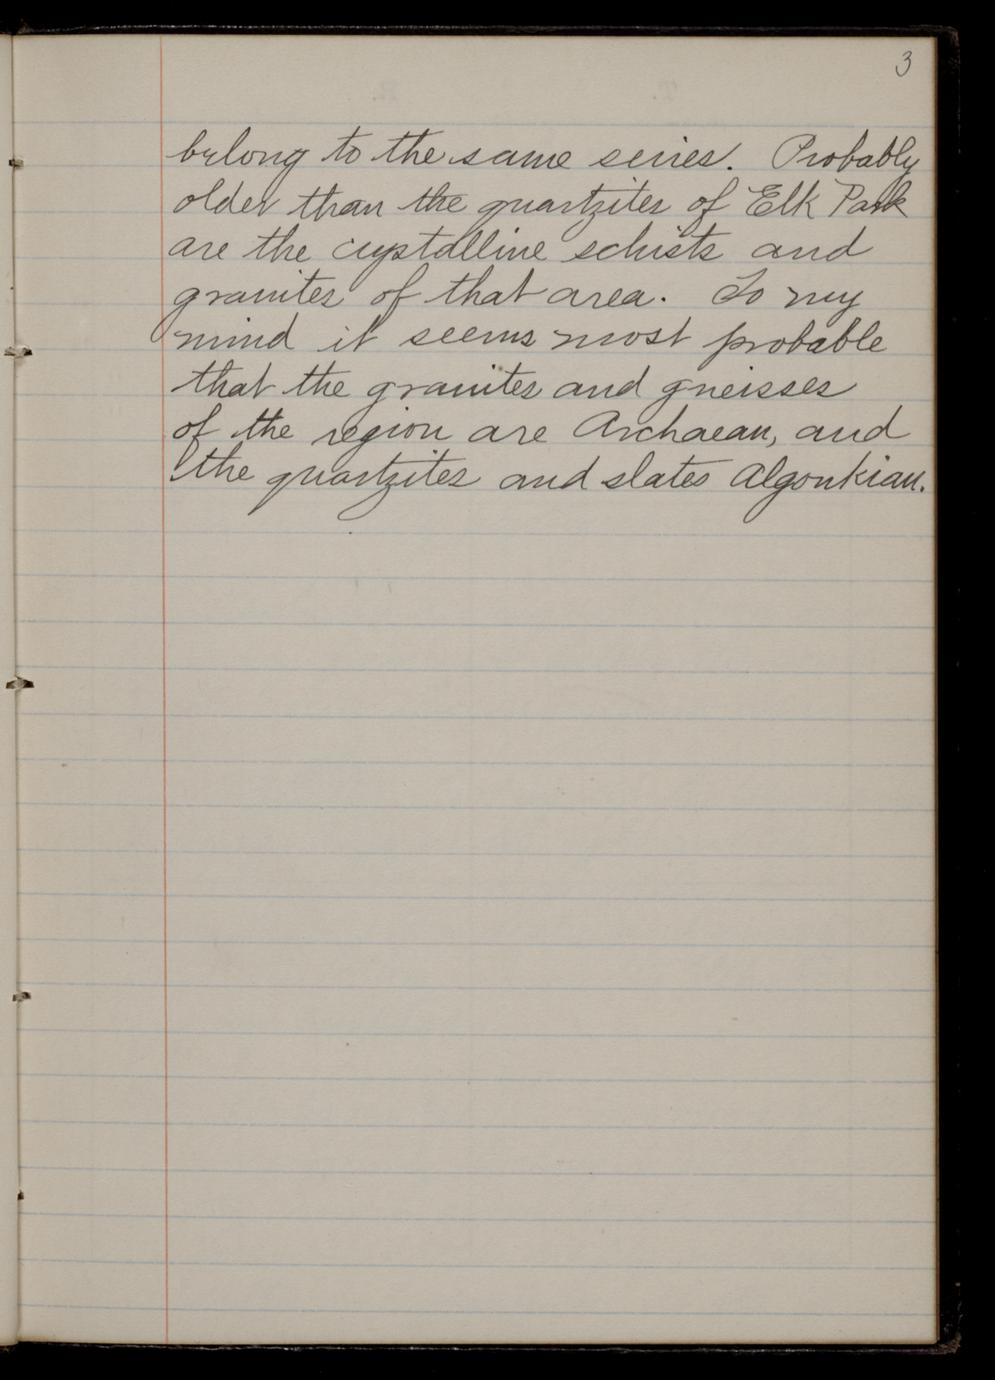 3
belong to the same series. Probably
older than the quartzites of Elk Park
are the crystalline schists and
granites of that area. To my
mind it seems most probable
that the granites and gneisses
of the region are Archaean, and
the quartzites and slates Algonkian.